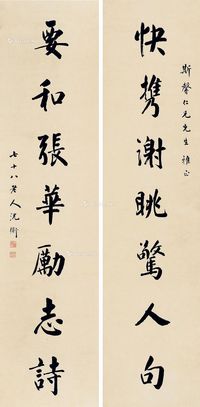 斯馨仁兄先生雅正
快携谢眺驚人句
要和張華勵志詩
七十八老人沈衛